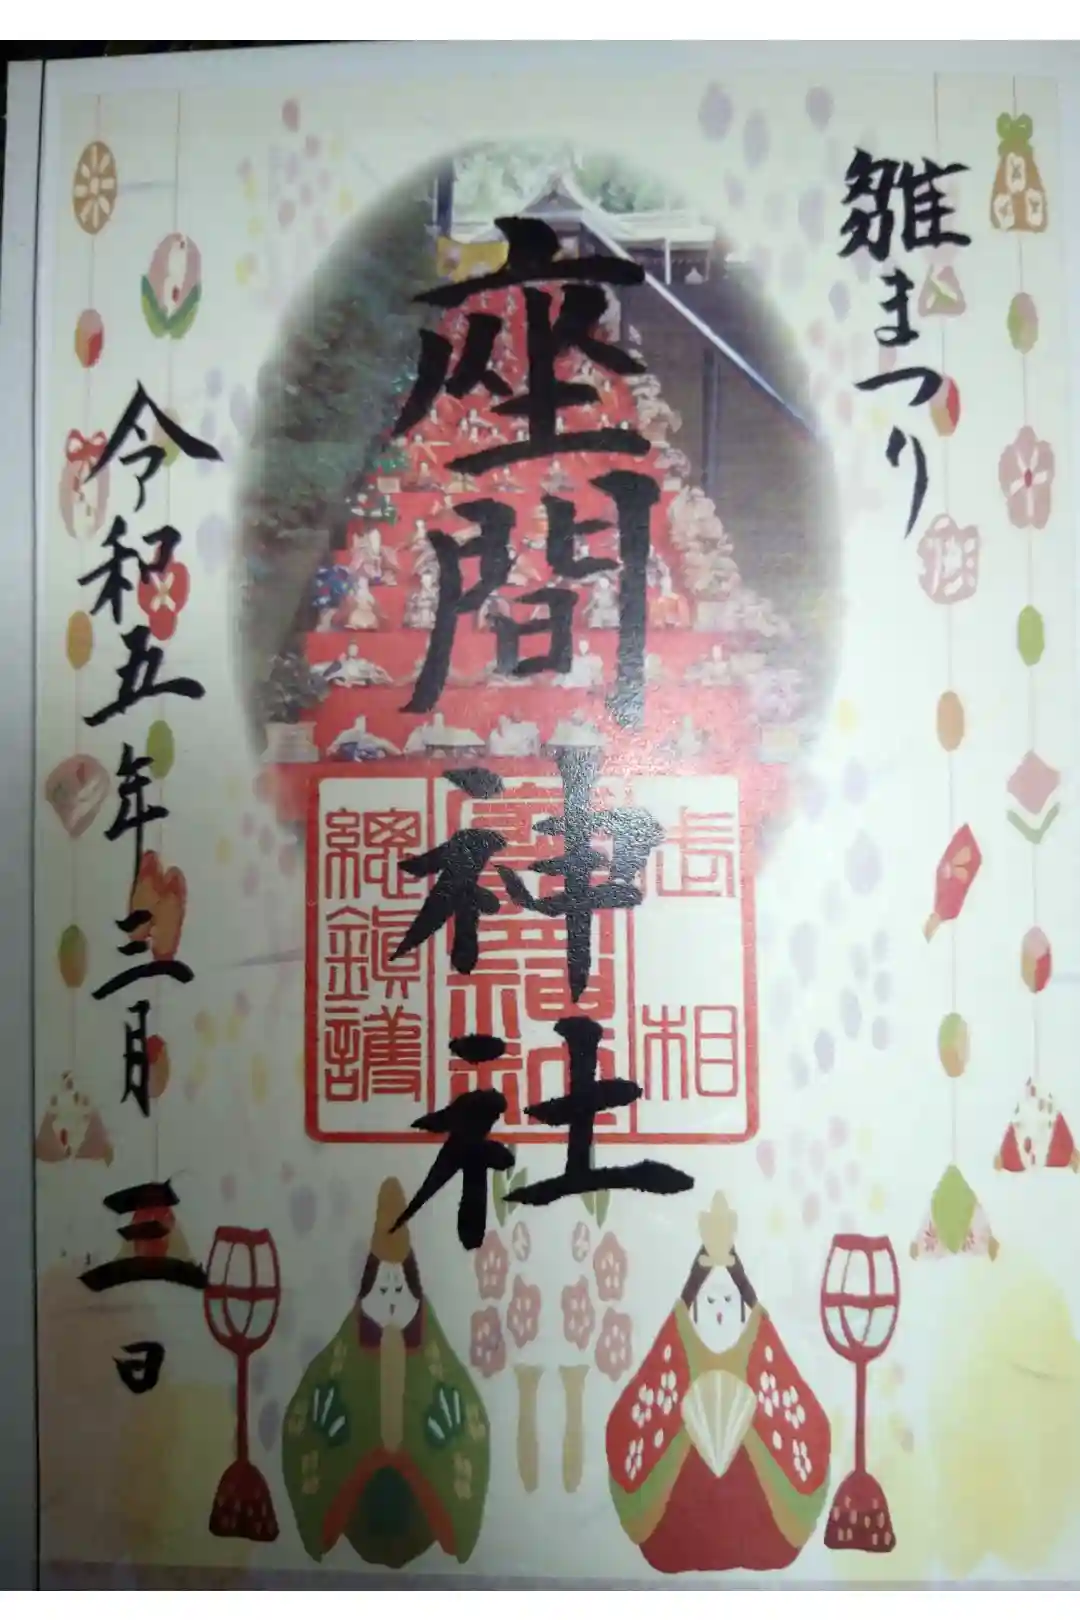 雛まつり
座間神社
武相
總鎮護
令和五年三月三日